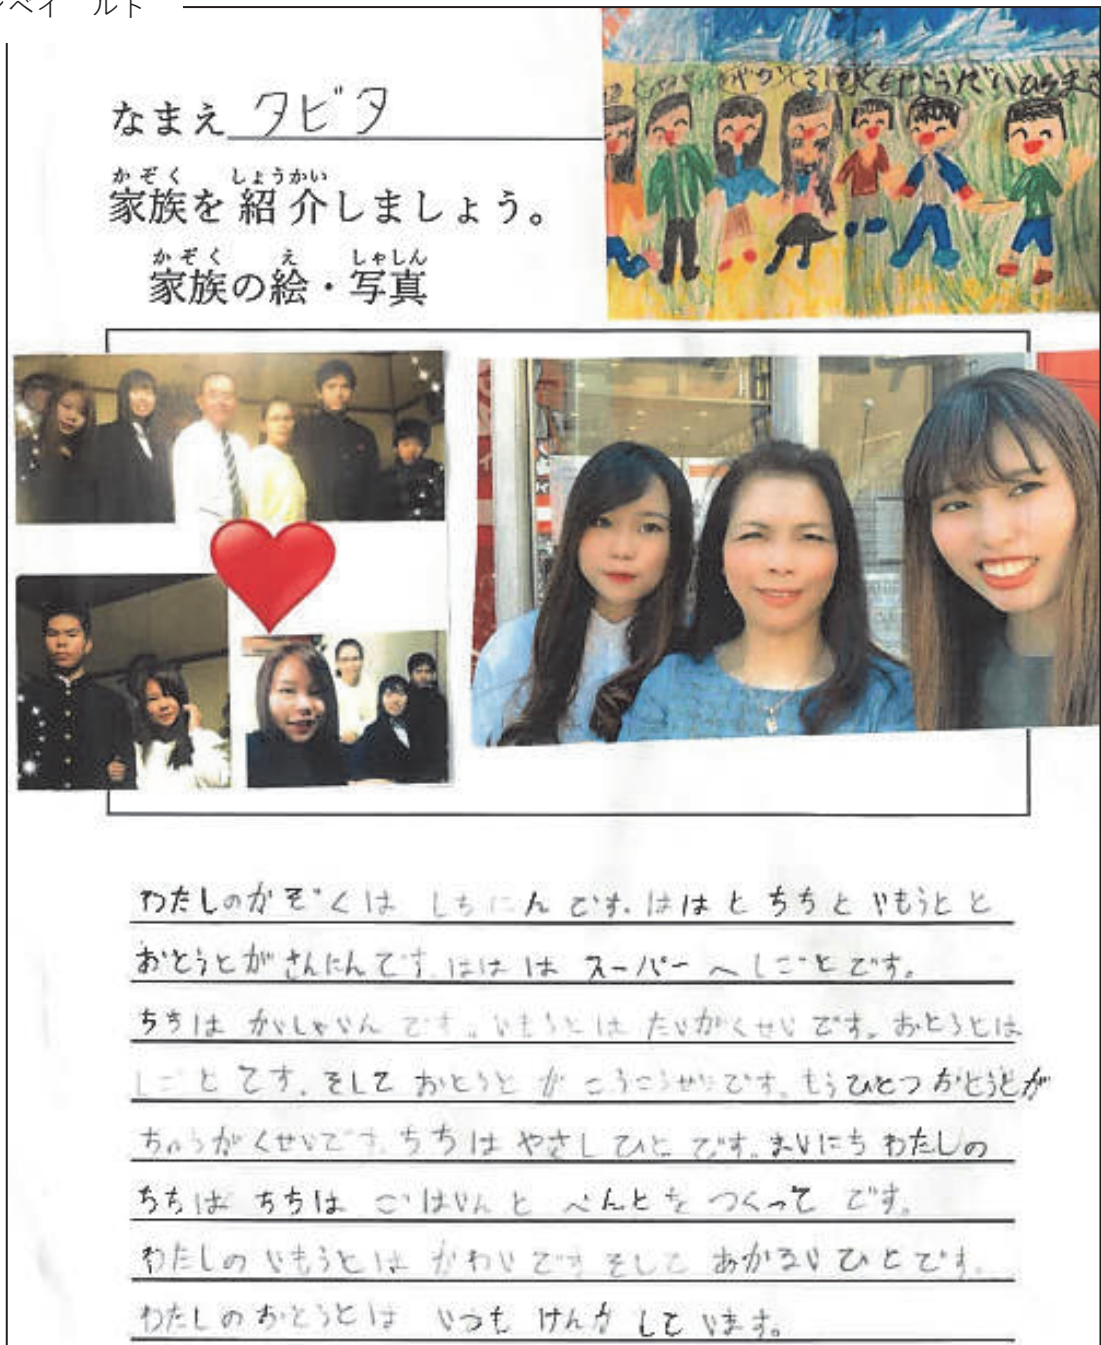 ベイ　ルト
なまえ タビタ
かぞく しょうかい
家族を紹介しましょう。
かぞく え しゃしん
家族の絵・写真
わたしのかぞくは しちにんです。ははと ちちと いもうとと
おとうとが さんにんです。ははは スーパーへ しごとです。
ちちは かいしゃいんです。いもうとは たいがくせいです。おとうとは
しごとてす。そして おとうとが こうこうせいです。もうひとつ おとうとが
ちゅうがくせいです。ちちは やさしひとです。まいにち わたしの
ちちは ちちは ごはいんと べんとを つくってです。
わたしの いもうとは かわいです そして あかるいひとです。
わたしのおとうとは いつも けんかしています。